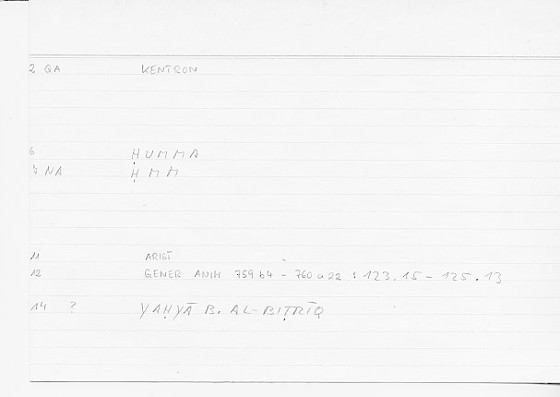 2 QA KENTRON
6 ḤUMMA
NA ḤMM
11 ARIST
12 GENER ANIM 759 b4 - 760 a 22 : 123.15 - 125.13
14 ? YAḤYĀ B. AL-BIṬRĪQ